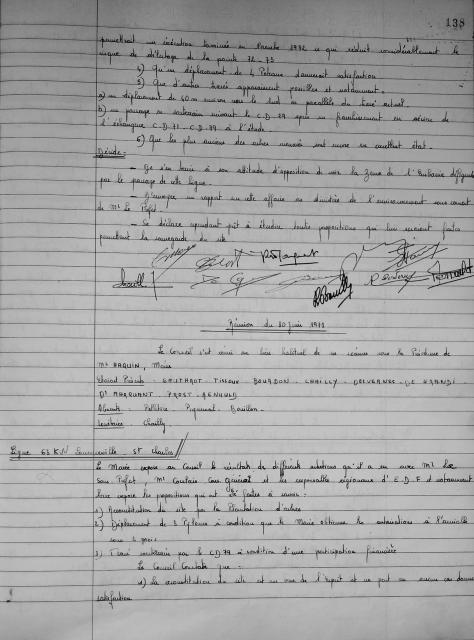 138
permettrait un exécution terminée en Décembre 1992 ce qui réduit considérablement le
risque de délestage de la pointe 72-73
4) Qu'un déplacement de 4 Poteaux donnerait satisfaction
5) Que d'autres tracés apparaissent possibles et notamment.
a) un déplacement de 40 m environ vers le sud en parallèle du tracé actuel.
b) un passage en souterrain suivant le C.D. 79 après un franchissement en aérien de
l'échangeur C.D. 71 - C.D. 79 à l'étude.
6) Que les plus anciens des arbres menacés sont encore en excellent état.
Décide:
- De s'en tenir à son attitude d'opposition de voir la zone de l'
par le passage de cette ligne.
- D'envoyer un rapport sur cette affaire au ministère de l'environnement sous couvert
de Mr Le Préfet.
- Se déclare cependant prêt à étudier toutes propositions qui lui seraient faites
permettant la sauvegarde du site
Réunion du 30 juin 1971
Le Conseil s'est réuni au lieu habituel de ses séances sous la Présidence de
Mr HAQUIN, Maire
Etaient Présents : GAUTHROT - TISSOUX - BOURDON - CHAILLY - DELVERNES - DE GRANDI -
Dr MARQUANT - PROST - RENAULD
Absents : Pelletrice Piquemal - Bouillon.
Secrétaire : Chailly.
Ligne 63 KV Senneville - St Charles
Le Maire expose au Conseil le résultat de différents entretiens qu'il a eu avec Mr Le
Sous Préfet, Mr Coutain Cons. Général et les responsables régionaux d'E.D.F et notamment
leur expose les propositions qui ont été faites à savoir.
1) Reconstitution du site par la Plantation d'arbres
2) Déplacement de 3 Pylônes à condition que le Maire obtienne les autorisations à l'amiable
sous 2 mois
3) Tracé souterrain par le CD 79 à condition d'une participation financière
Le Conseil Constate que :
1) la reconstitution du site est une vue de l'esprit et ne peut en aucun cas donner
satisfaction